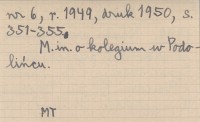 nr 6, r. 1949, druk 1950, s.
351-355.
M. in. o kolegium w Podo-
lińcu.
MT